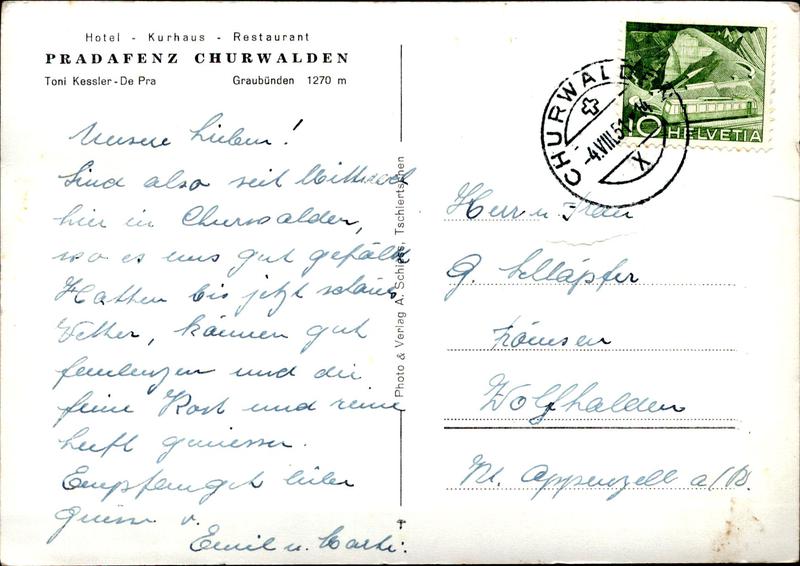 Hotel - Kurhaus - Restaurant
PRADAFENZ CHURWALDEN
Toni Kessler-De Pra Graubünden 1270 m
Unsere Lieben!
Sind also seit Mittwoch
hier in Churwalden,
wo es uns gut gefällt
Hatten bis jetzt schönes
Wetter, können gut
faulenzen und die
feine Kost und reine
Luft geniessen.
Empfangt liebe
Grüsse v.
Emil u.
Photo & Verlag A. Schiess, Tschiertschen
CHURWALDEN
-4.VIII.51
X
10 HELVETIA
Herr u. Frau
G. Schläpfer
Wolfhalden
Kt. Appenzell a/Rh.